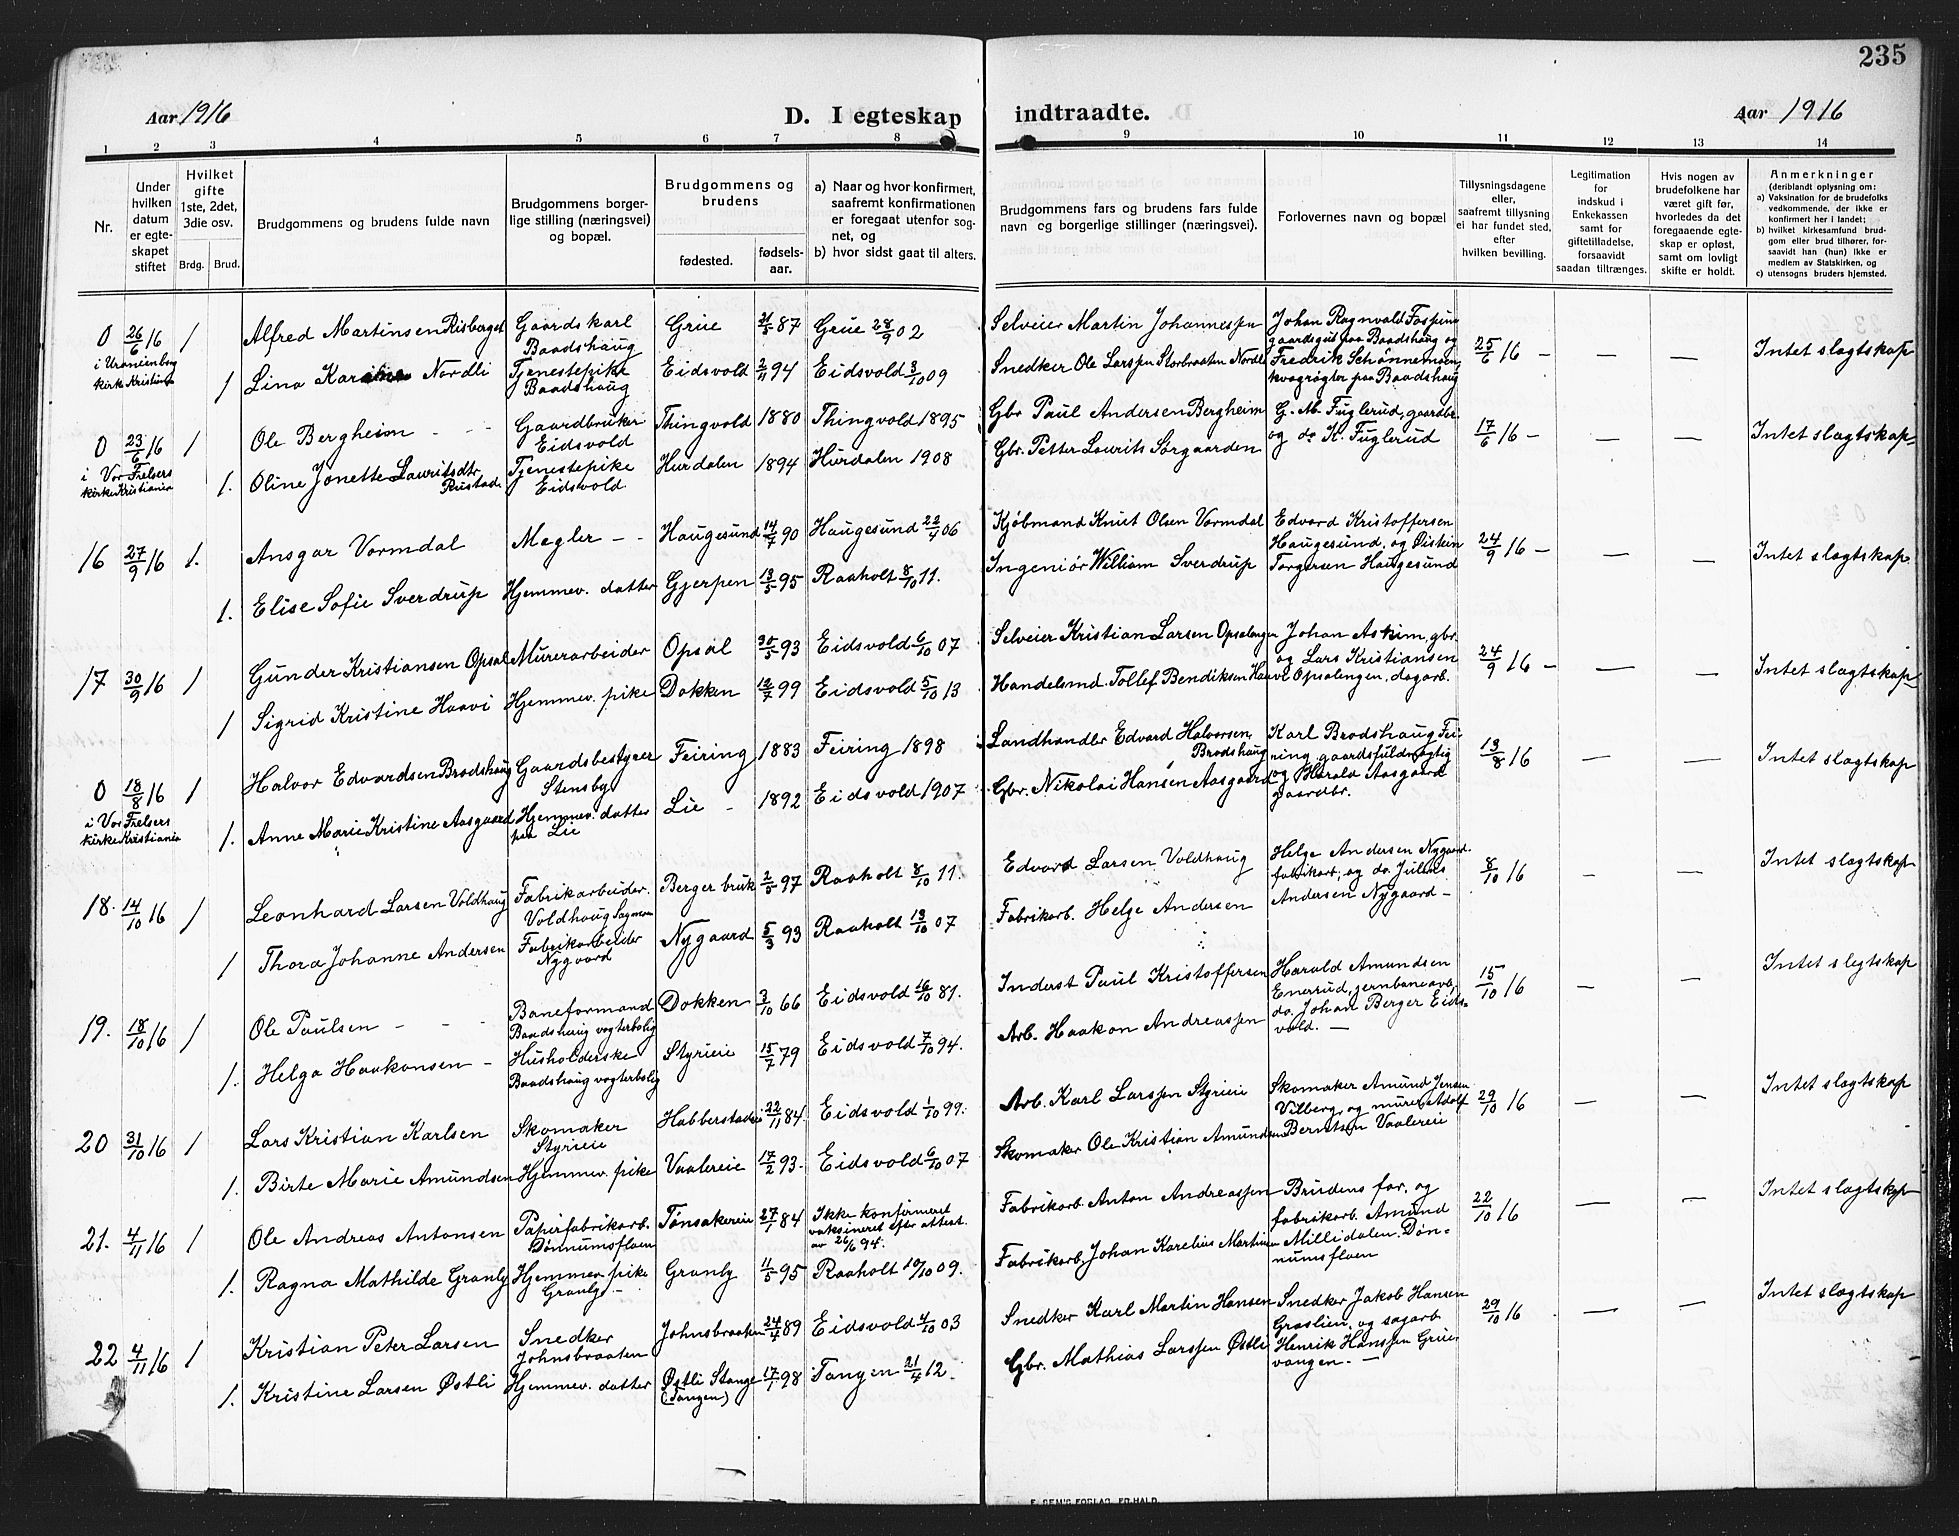 235
Aar 1916 D. I egteskap indtraadte. Aar 1916
1 2 3 4 5 6 7 8 9 10 11 12 13 14
Nr.
Under
hvilken
datum
er egte-
skapet
stiftet
Hvilket
gifte
1ste, 2det,
3die osv.
Brdg. Brud.
Brudgommens og brudens fulde navn
Brudgommens borger-
lige stilling (næringsvei)
og bopæl.
Brudgommens og
brudens
fødested.
fødsels-
aar.
a) Naar og hvor konfirmert,
saafremt konfirmationen
er foregaat utenfor sog-
net, og
b) hvor sidst gaat til alters.
Brudgommens fars og brudens fars fulde
navn og borgerlige stillinger (næringsvei).
Forlovernes navn og bopæl
Tillysningsdagene
eller,
saafremt tillysning
ei har fundet sted,
efter
hvilken bevilling.
Legitimation
for
indskud i
Enkekassen
samt for
giftetilladelse,
forsaavidt
saadan tiltrænges.
Hvis nogen av
brudefolkene har
været gift før,
hvorledes da det
foregaaende egte-
skap er opløst,
samt om lovligt
skifte er holdt.
Anmerkninger
(deriblandt oplysning om:
a) Vaksination for de brudefolks
vedkommende, der ikke er
konfirmert her i landet;
b) hvilket kirkesamfund brud-
gom eller brud tilhører, for-
saavidt han (hun) ikke er
medlem av Statskirken, og
c) utensogns bruders hjemsted.
0 26/6 16 1 Alfred Martinsen Risberget Gaardskarl Baadshaug Grue 21/5 87 Grue 28/9 02 Selveier Martin Johannessen Johan Ragnvald
gaardsgut paa Baadshaug og 25/6 16 – — — Intet slagtskap
i Uranienborg
kirk Kristiania
1 Lina Nordli Tjenestepike Baadshaug Eidsvold 2/11 94 Eidsvold 3/10 09 Snedker Ole Larssen Storbraaten Nordli Fredrik
kvægrøgter paa Baadshaug
0 23/6 16 1 Ole Bergheim - - Gaardbruker Eidsvold Thingvold 1880 Thingvold 1895 Gbr Paul Andersen Bergheim G. M. Fuglerud, gaardbr. 17/6 16 – — — Intet slagtskap
i Vor Frelsers
kirke Kristiania
1. Oline Jonette Lauritsdtr. Rustad. Tjenestepike Eidsvold. Hurdalen 1894 Hurdalen 1908 Gbr. Petter Laurits Sørgaarden og do K. Fuglerud
16 27/9 16 1. Ansgar Vormdal Megler - - Haugesund 14/7 90 Haugesund 22/4 06 Kjøbmand Knut Olsen Vormdal Edvard Kristoffersen
Haugesund, og Øistein 24/9 16 – — — Intet slagtskap.
1. Elise Sofie Sverdrup Hjemmev. datter Gjerpen 13/5 95 Raaholt 8/10 11. Ingeniør William Sverdrup Torgersen Haugesund
17 30/9 16 1 Gunder Kristiansen Opsal Murerarbeider Opsal 30/5 93 Eidsvold 6/10 07 Selveier Kristian Larsen Opsalengen Johan Askim, gbr.
og Lars Kristiansen 24/9 16 – — — Intet slagtskap
1 Sigrid Kristine Haavi Hjemmev. pike Dokken 12/7 99 Eidsvold 5/10 13 Handelsmd. Tollef Bendiksen Haavi Opsalengen, dagarb.
0 18/8 16 1 Halvor Edvardsen Brodshaug Gaardsbestyrer Stensby Feiring 1883 Feiring 1898 Landhandler Edvard Halvorsen Brodshaug Karl Brodshaug Fei-
ring, gaardsfuldmægtig 13/8 16 — — Intet slagtskap
i Vor Frelsers
kirke Kristiania
1. Anne Marie Kristine Aasgaard Hjemmev. datter paa Lie Lie - 1892 Eidsvold 1907 Gbr. Nikolai Hansen Aasgaard og Harald Aasgaard
gaardbr.
18. 14/10 16 1 Leonhard Larsen Voldhaug Fabrikarbeider. Voldhaug Berger bruk 2/5 97 Raaholt 8/10 11. Edvard Larsen Voldhaug Helge Andersen Nygaard
fabrikarb., og do. Julius 8/10 16 – — Intet slagtskap
1 Thora Johanne Andersen Fabrikarbeider Nygaard Nygaard 5/3 93 Raaholt 13/10 07 Fabrikarb. Helge Andersen Andersen Nygaard –
19. 18/10 16 1 Ole Paulsen - - Baneformand Baadshaug vogterbolig Dokken 3/10 66 Eidsvold 16/10 81. Inderst Paul Kristoffersen Harald Amundsen
Enerud, jernbanearb., 15/10 16 – — Intet slegtskap
1. Helga Haakonsen – Husholderske Baadshaug vogterbolig Styrieie 15/7 79 Eidsvold 7/10 94. Arb. Haakon Andreassen do. Johan Berger Eids-
vold. —
20 31/10 16 1 Lars Kristian Karlsen Skomaker Styrieie Habberstadeie 22/11 84. Eidsvold 1/10 99. Arb. Karl Larssen Styrieie Skomaker Amund Jensen
Vilberg, og murer Adolf 29/10 16 – — Intet slagtskap
1. Birte Marie Amundsen Hjemmev. pike Vaalereie 17/2 93. Eidsvold 6/10 07 Skomaker Ole Kristian Amundsen Berntsen Vaalereie
21. 4/11 16 1 Ole Andreas Antonsen Papirfabrikarb. Dønnumsfloen Tønsakereie 27/1 84 Ikke konfirmeret
vaksineret efter attest.
av 26/6 94. Fabrikarb. Anton Andreassen Brudens far, og
fabrikarb. Amund 22/10 16 — — Intet slagtskap
1. Ragna Mathilde Granly Hjemmev. pike Granly – Granly 11/5 95 Raaholt 10/10 09. Fabrikarb. Johan Karelius Martinsen Millidalen. Døn-
numsfloen
22 4/11 16 1 Kristian Peter Larsen Snedker Johnsbraaten Johnsbraaten 24/4 89 Eidsvold 4/10 03 Snedker Karl Martin Hansen Snedker Jakob Hansen
Graslien, og sagarb. 29/10 16 — — Intet slagtskap
1. Kristine Larsen Østli Hjemmev. datter Østli Stange (Tangen) 17/1 98 Tangen 21/4 12. Gbr. Mathias Larssen Østli Henrik Hanssen Grue-
vangen. –